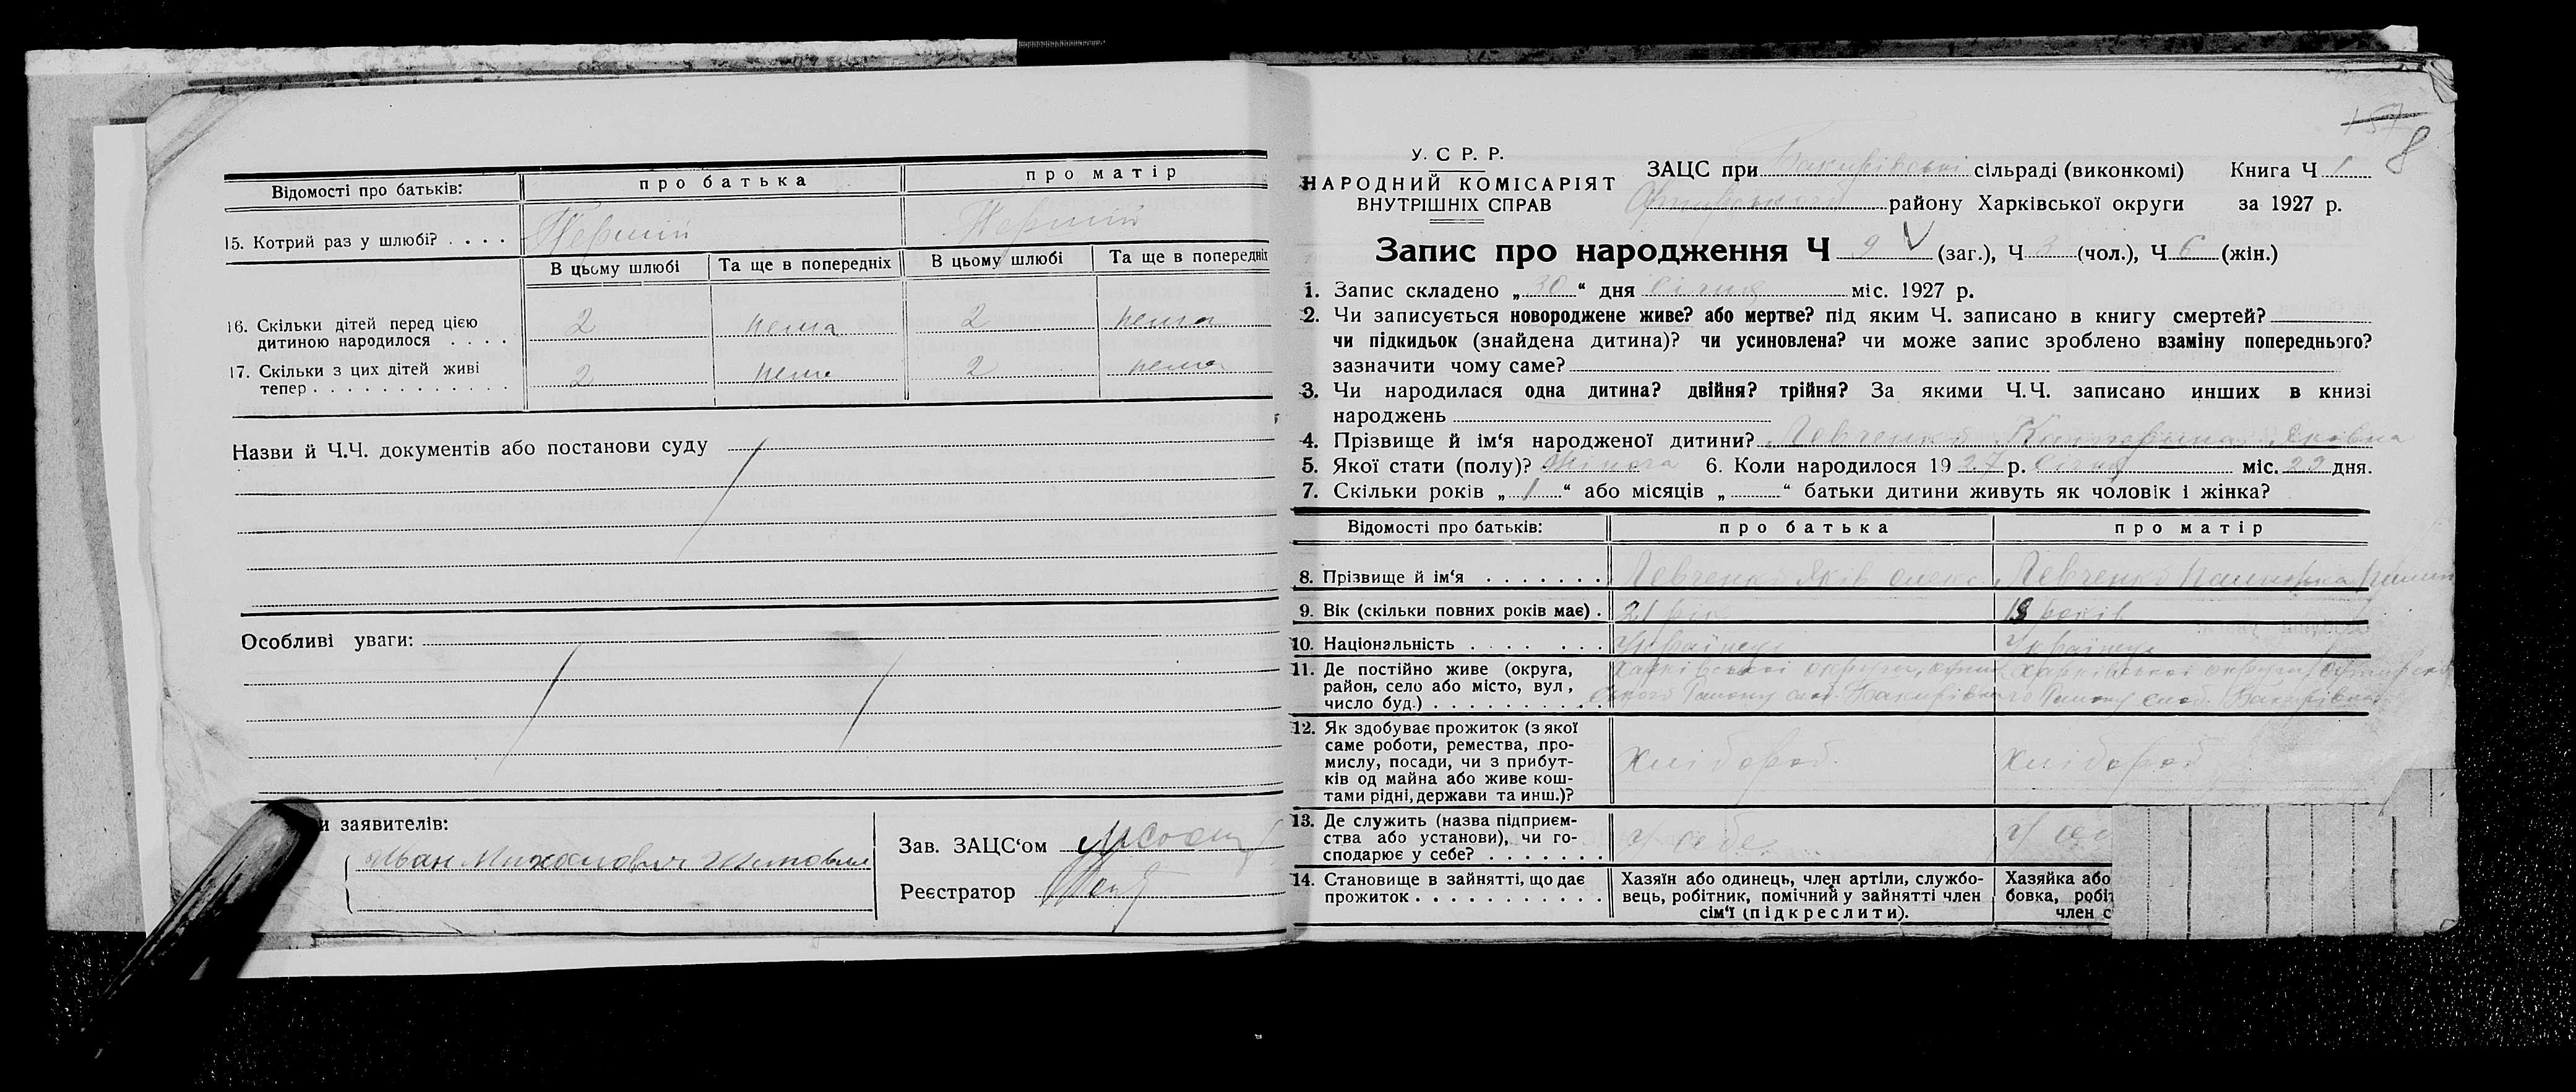 Відомості про батьків: про батька про матір
15. Котрий раз у шлюбі? . . . . Перший Перший
В цьому шлюбі Та ще в попередніх В цьому шлюбі Та ще в попередніх
16. Скільки дітей перед цією
дитиною народилося . . . . 2 нема 2 нема
17. Скільки з цих дітей живі
тепер . . . . . . . . . . . . 2 нема 2 нема
Назви й Ч.Ч. документів або постанови суду
Особливі уваги:
и заявителів:
Иван Михайлович
Зав. ЗАЦС‘ом
Реєстратор
157
8
У. С Р. Р.
НАРОДНИЙ КОМІСАРІЯТ
ВНУТРІШНІХ СПРАВ
ЗАЦС при Бакирівській сільраді (виконкомі) Книга Ч 1
району Харківської округи за 1927 р.
Запис про народження Ч 9 (заг.), Ч 3 (чол.), Ч 6 (жін.)
1. Запис складено „ 30 “ дня Січня міс. 1927 р.
2. Чи записується новороджене живе? або мертве? під яким Ч. записано в книгу смертей?
чи підкидьок (знайдена дитина)? чи усиновлена? чи може запис зроблено взаміну попереднього?
зазначити чому саме?
3. Чи народилася одна дитина? двійня? трійня? За якими Ч.Ч. записано инших в книзі
народжень
4. Прізвище й ім‘я народженої дитини? Левченко Яковна
5. Якої стати (полу)? Жіноча 6. Коли народилося 1927 р. Січня міс. 29 дня.
7. Скільки років „ 1 “ або місяців „ “ батьки дитини живуть як чоловік і жінка?
Відомості про батьків: про батька про матір
8. Прізвище й ім‘я . . . . . . . Левченко Яків Олекс. Левченко
9. Вік (скільки повних років має) . 21 рік 19 років
10. Національність . . . . . . . Українець Українець
11. Де постійно живе (округа,
район, село або місто, вул,
число буд.) . . . . . . . . . . Харківської округи Району слоб. Бакирівка Харківської округи Району слоб. Бакирівка
12. Як здобуває прожиток (з якої
саме роботи, ремества, про-
мислу, посади, чи з прибут-
ків од майна або живе кош-
тами рідні, держави та инш.)? Хлібороб. Хлібороб
13. Де служить (назва підприєм-
ства або установи), чи го-
сподарює у себе? . . . . . . . У себе У себ
14. Становище в зайнятті, що дає
прожиток . . . . . . . . . . .
Хазяїн або одинець, член артіли, службо-
вець, робітник, помічний у зайнятті член
сім‘ї (підкреслити).
Хазяйка або
бовка, робіт
член с